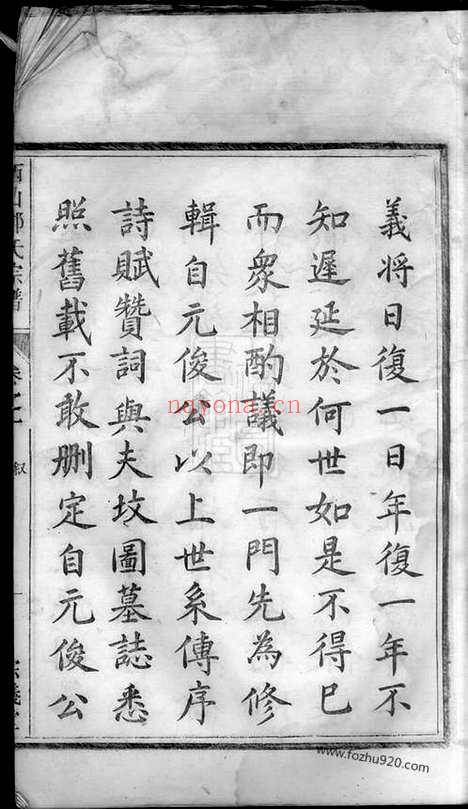 義將日復一日年復一年不
知遲延於何世如是不得已
而衆相酌議即一門先為修
輯自元俊公以上世系傳序
詩賦贊詞與夫坟圖墓誌悉
照舊載不敢刪定自元俊公
氏宗譜
卷之一
叙
nayona.cn
www.fozhu920.com